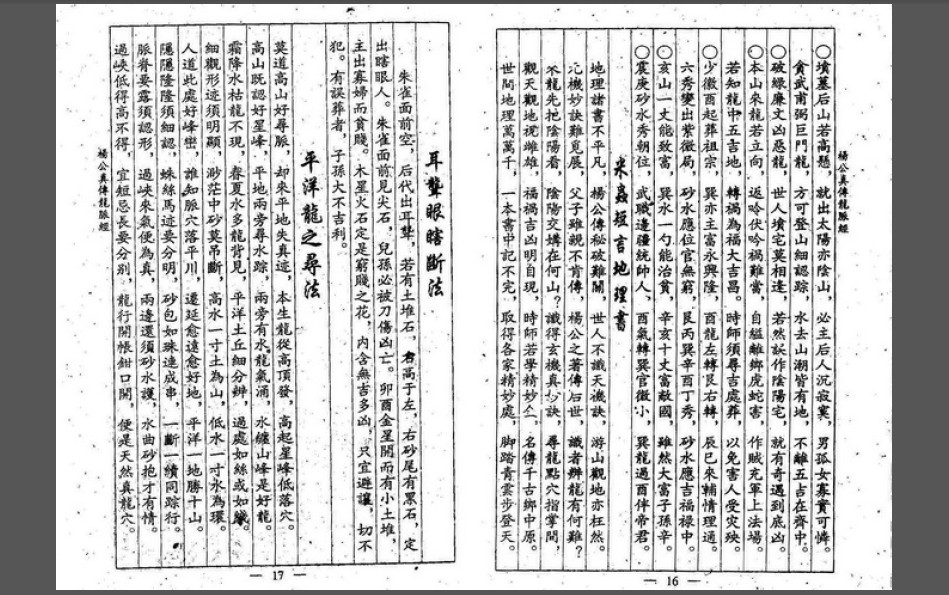 楊公真傳龍脈經
○墳墓后山若高懸，就出太陽亦陰山，必主后人沉寂寞，男孤女寡實可憐。
貪武甫弼巨門龍，方可登山細認踪，水去山潮皆有地，不離五吉在齊中。
○破綠廉文凶惡龍，世人墳宅莫相逢，若然誤作陰陽宅，就有奇遇到底凶。
○本山來龍若立向，返呤伏吟禍難當，自縊離鄉虎蛇害，作賊充軍上法場。
若知龍中五吉地，轉禍為福大吉昌。時師須尋吉處葬，以免害人受災殃。
○少微酉起葬祖宗，巽亦主富永興隆，酉龍左轉艮右轉，辰巳來輔情理通。
六秀變出紫微局，砂水應位官無窮，艮丙巽辛酉丁秀，砂水應吉福祿中。
○亥山一丈能致富，巽水一勺能治貧，辛亥十丈富敵國，雖然大富子孫辛。
○震庚砂水秀朝位，武職邊疆統帥人、酉氣轉巽官微小，巽龍過酉伴帝君。
短言地理書
地理諸書不平凡，楊公傳秘破難關，世人不識天機訣，游山觀地亦枉然。
元機妙訣難覓展，父子雖親不肯傳，楊公之著傳后世，識者辨龍有何難？
龍先把陰陽看，陰陽交媾在何山？識得玄機真妙訣，尋龍點穴指掌間，
觀天觀地視雌雄，福禍吉凶明自現，時師若學精妙，名傳千古鄉中原。
世間地理萬萬千，一本書中記不完，取得各家精妙處，脚踏青雲步登天。
— 16 —
耳聾眼瞎斷法
朱雀面前空，后代出耳聾，若有土堆石，右高于左，右砂尾有黑石，定
出瞎眼人。朱雀面前見尖石，兒孫必被刀傷凶亡。卯酉金星開而有小土堆，
主出寡婦而貧賤。木星火石定是窮賤之花，内含無吉多凶，只宜避讓，切不
犯。有誤葬者，子孫大不吉利。
平洋龍之尋法
莫道高山好尋脈，却來平地失真迹，本生龍從高頂發，高起星峰低落穴。
高山既認好星峰，平地兩旁尋水踪，兩旁有水龍氣涌，水纏山峰是好龍。
霜降水枯龍不現，春夏水多龍背見，平洋土丘細分辨，過處如絲或如綫。
細觀形迹須明顯，渺茫中砂莫吊斷，高水一寸土為山，低水一寸水為環。
人道此處好峰巒，誰知脈穴落平川，還延愈遠愈好地，平洋一地勝十山。
隱隱隆隆須細認，蛛絲馬迹要分明，砂包如珠連成串，一斷一續同踪行。
脈脊要露須認形，過峽來氣便為真，兩邊還須砂水護，水曲砂抱才有情。
過峽低得高不得，宜短忌長要分别，龍行開帳鉗口開，便是天然真龍穴。
楊公真傳龍脈經
— 17 —